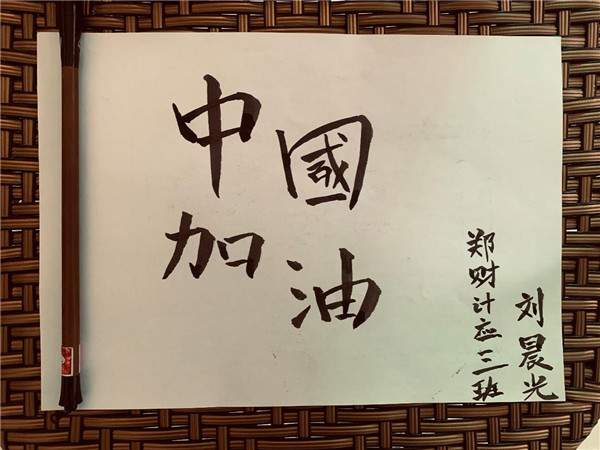 中國
加油
郑财计应三班
刘晨光